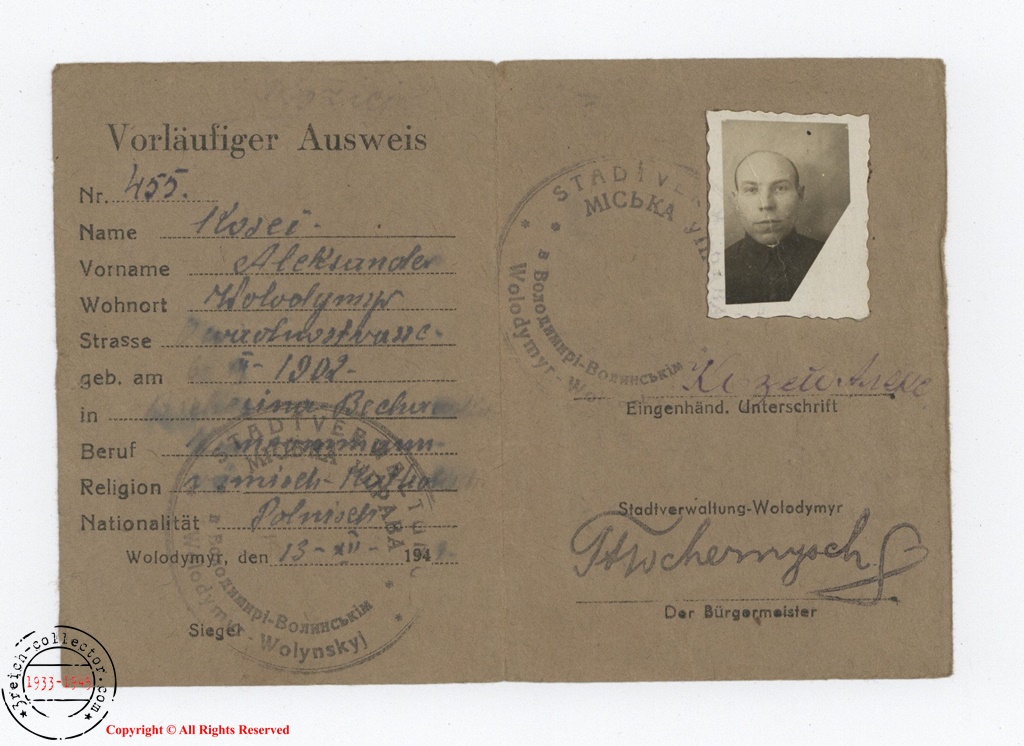 Vorläufiger Ausweis
Nr. 455.
Name Kosei-
Vorname Aleksander
Wohnort Wolodymyr
Strasse
geb. am II-1902-
in
Beruf
Religion
Nationalität Polnisch
Wolodymyr, den 13-XII- 194
Sieger
STADTVERWALTUNG
МІСЬКА УПРАВА
в Володимирі-Волинськім
Wolodymyr-Wolynskyj
STADTVE
МІСЬКА
в Володимирі-Волинськім
Wolodymyr-Wo
Козей Алекс
Eingenhänd. Unterschrift
Stadtverwaltung-Wolodymyr
Der Bürgermeister
3reich-collector.com
1933-1945
Copyright © All Rights Reserved